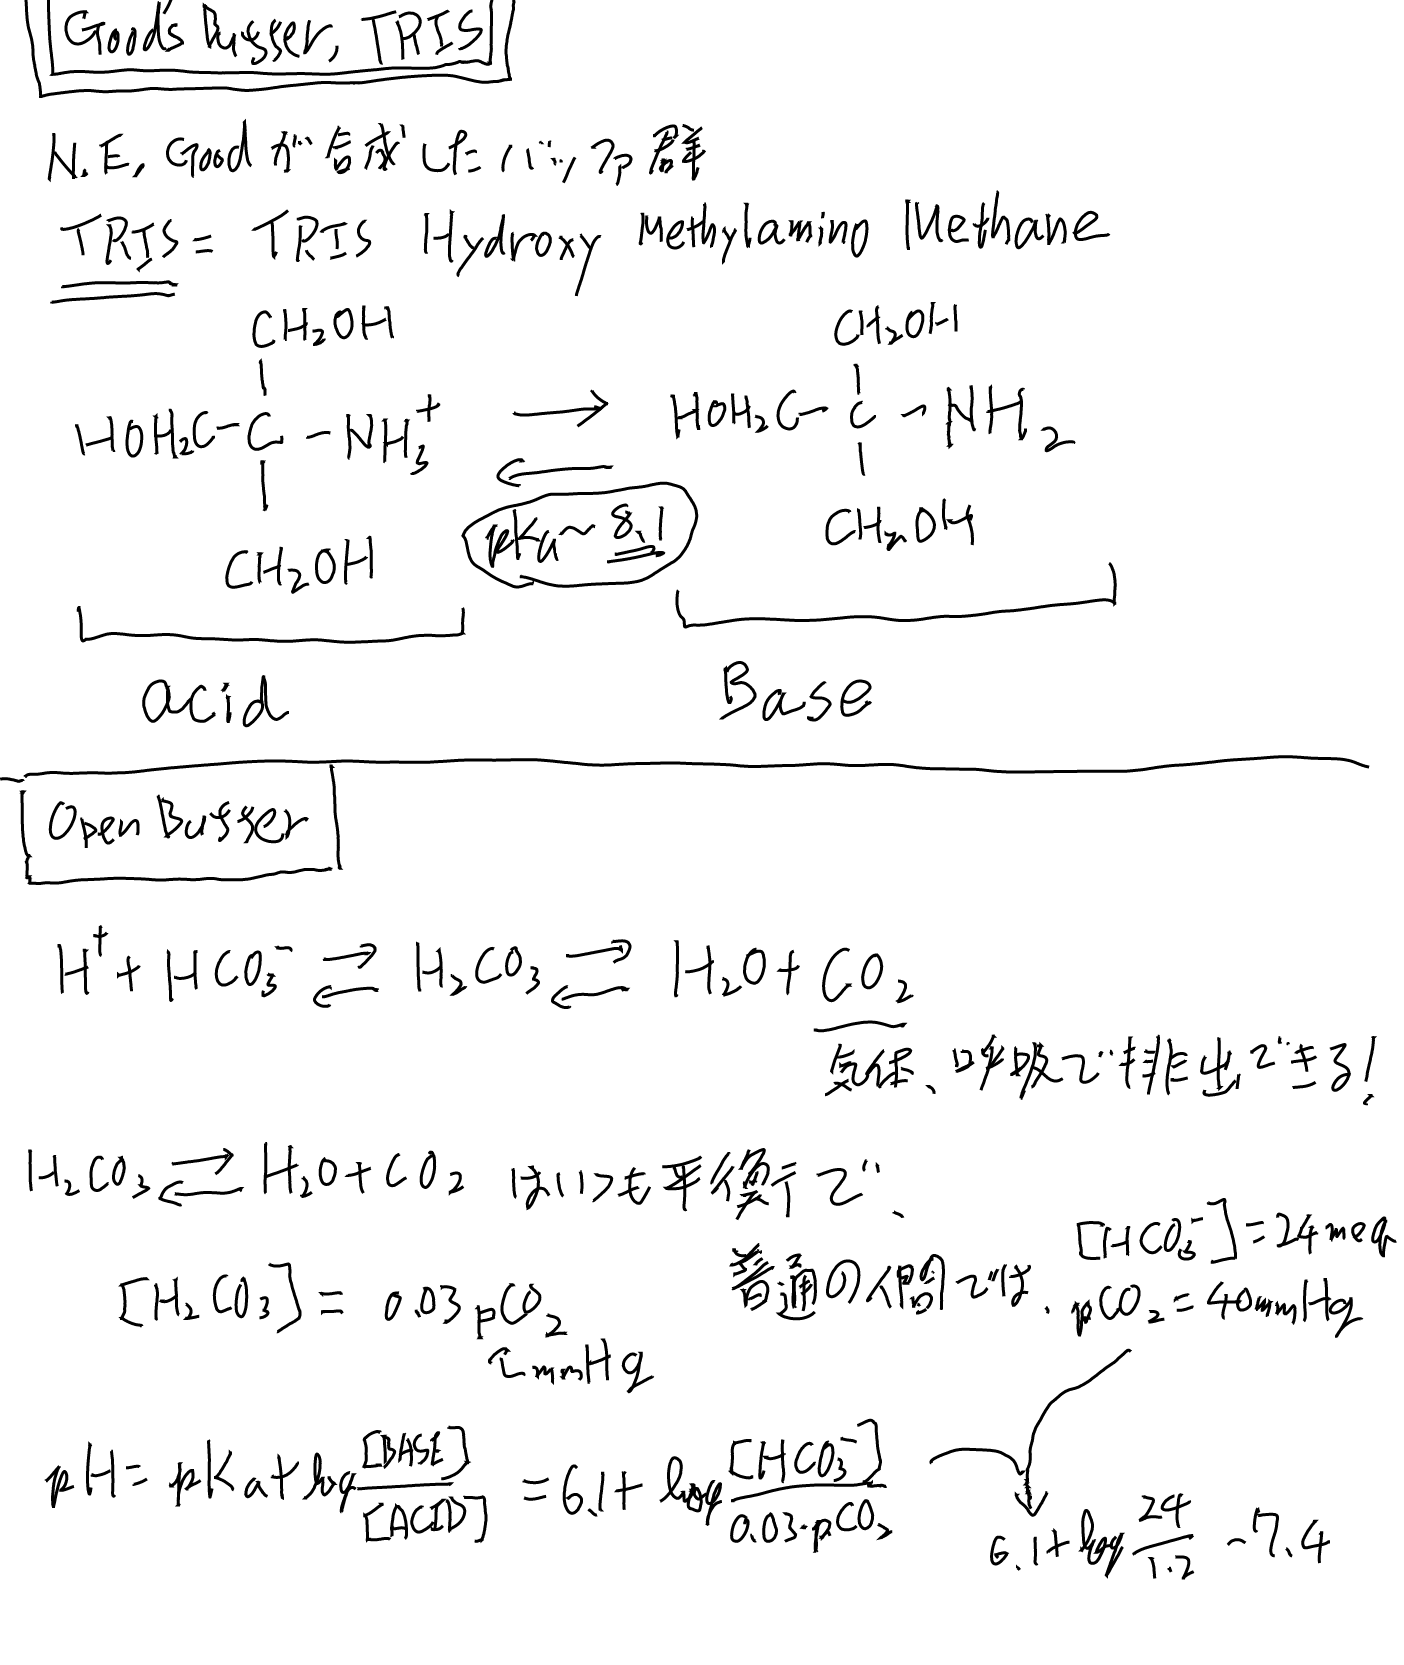 Good's Buffer, TRIS
N.E, Good が合成したバッファ群
TRIS = TRIS Hydroxy Methylamino Methane
CH₂OH
HOH₂C-C-NH₃⁺
CH₂OH
pKa~8.1
CH₂OH
HOH₂C-C-NH₂
CH₂OH
acid
Base
Open Buffer
H⁺ + HCO₃⁻ ⇄ H₂CO₃ ⇄ H₂O + CO₂
気体、呼吸で排出できる!
H₂CO₃ ⇄ H₂O + CO₂ はいつも平衡で、
[H₂CO₃] = 0.03 pCO₂
mmHg
普通の人間では、
[HCO₃⁻] = 24 meq
pCO₂ = 40 mmHg
pH = pKa + log [BASE]/[ACID] = 6.1 + log [HCO₃⁻]/0.03·pCO₂
6.1 + log 24/1.2 ~7.4